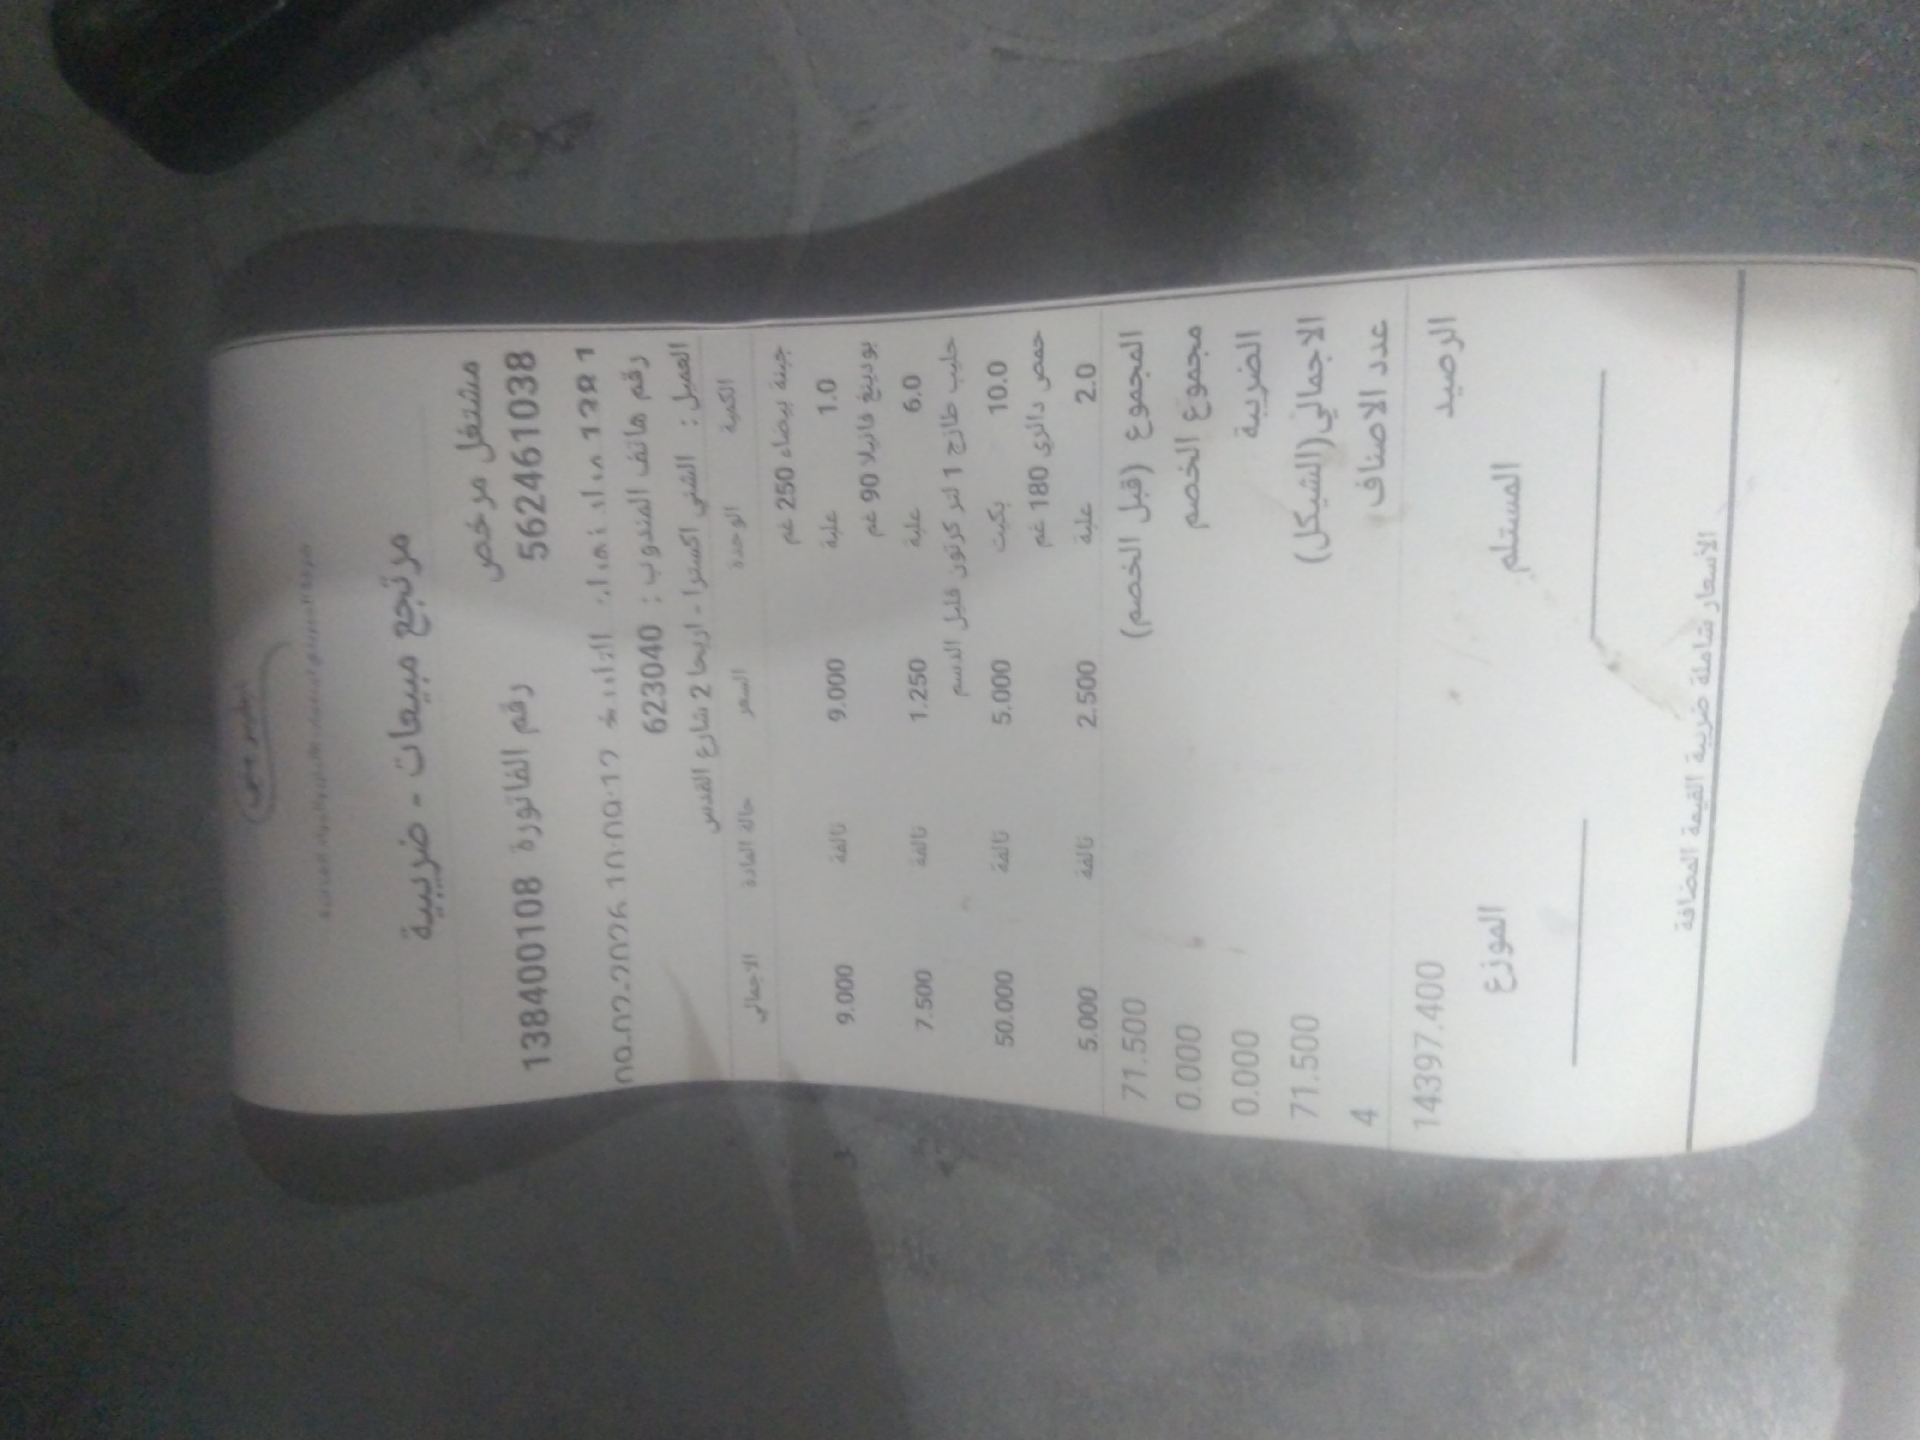 مرتجع مبيعات - ضريبية
مشتغل مرخص
562461038 رقم الفاتورة 138400108
رقم هاتف المندوب : 623040
العميل : الشني اكسترا - اريحا 2 شارع القدس
الكمية الوحدة السعر حالة المادة الاجمالي
جبنة بيضاء 250 غم
1.0 علبة 9.000 تالفة 9.000
بودينغ فانيلا 90 غم
6.0 علبة 1.250 تالفة 7.500
حليب طازج 1 لتر كرتون قليل الدسم
10.0 بكيت 5.000 تالفة 50.000
حمص دالزي 180 غم
2.0 علبة 2.500 تالفة 5.000
المجموع (قبل الخصم) 71.500
مجموع الخصم 0.000
الضريبة 0.000
الاجمالي(الشيكل) 71.500
عدد الاصناف 4
الرصيد 14397.400
المستلم الموزع
الأسعار شاملة ضريبة القيمة المضافة